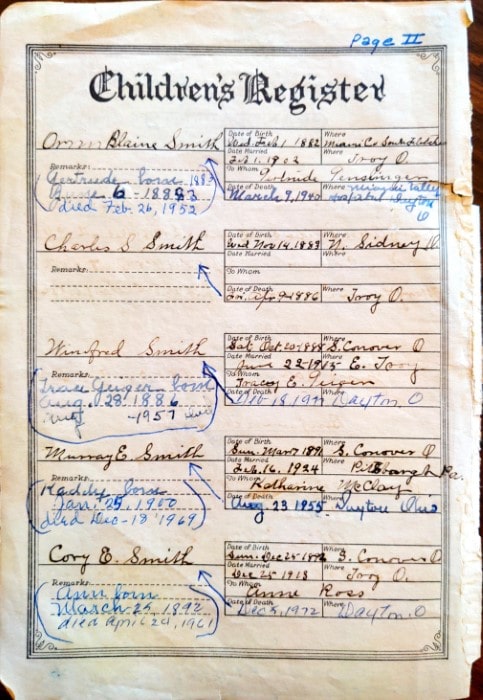 Page II
Children's Register
Orrin Blaine Smith
Date of Birth Wed. Feb 1 1882 Where Miami Co South Fletcher
Date Married Feb 1. 1902 Where Troy O
To Whom Gertrude Gensinger
Remarks: Gertrude born 1883
6 - 1883
died Feb 26, 1952
Date of Death March 9, 1940 Where Miami Valley
Hospital Dayton
O
Charles S Smith
Date of Birth Wed Nov 14. 1883 Where N. Sidney O
Date Married Where
Remarks: To Whom
Date of Death 1886 Where Troy O.
Winfred Smith
Date of Birth Sat Oct 20 1888 Where S. Conover O
Date Married June 22 1915 Where E. Troy
To Whom Tracey E. Geiger
Remarks:
Geiger born
Aug. 28. 1886
1957
18 19 Dayton O
Murray E. Smith
Date of Birth Sun. Mar 1 189 Where S. Conover O
Date Married Feb. 16. 1924 Where Pittsburgh Pa.
To Whom Katharine McClay
Remarks:
born
Jan. 25, 1900
died Dec - 18 1969
Date of Death Aug 23 1955 Dayton Ohio
Cory E. Smith
Date of Birth Sun. Dec 25 189 Where S. Conover O
Date Married Dec 25 1918 Where Troy O.
To Whom Anne Ross
Remarks: Ann born
March 25, 1892
died April 24, 1961
Date of Death Dec 1972 Where Dayton, O